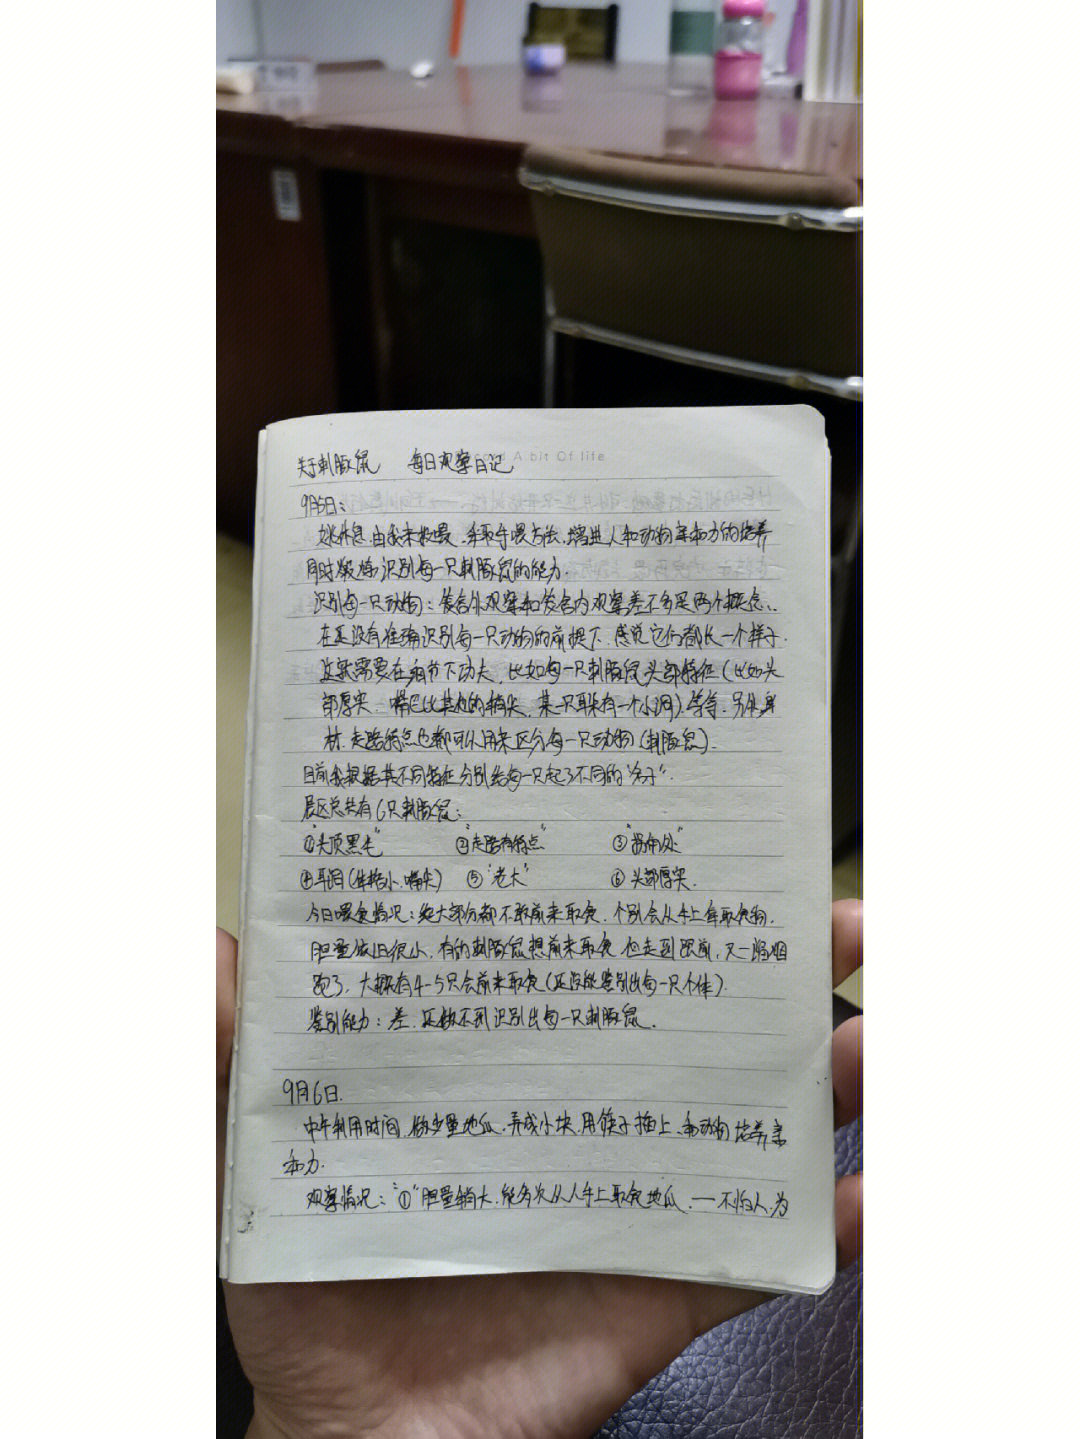 关于刺豚鼠 每日观察日记
A bit Of life
9月5日：
姚休息，由我来投喂，采取手喂方法，增进人和动物亲和力的培养
同时锻炼识别每一只刺豚鼠的能力.
识别每一只动物：笼舍外观察和笼舍内观察差不多是两个概念，
在还没有准确识别每一只动物的前提下，感觉它们都长一个样子.
这就需要在细节下功夫，比如每一只刺豚鼠头部特征（比如头
部厚实，嘴巴比其他的稍尖，某一只耳朵有一个小洞）等等，另外身
材，走路特点也都可以用来区分每一只动物（刺豚鼠）.
目前我根据其不同特征分别给每一只起了不同的“名子”.
展区总共有6只刺豚鼠：
①“头顶黑毛” ②“走路有特点” ③“拐角处”
④耳洞（体格小，嘴尖） ⑤“老大” ⑥头部厚实.
今日喂食情况：绝大部分都不敢前来取食，个别会从手上拿取食物，
胆量依旧很小，有的刺豚鼠想前来取食，但走到跟前，又一溜烟
跑了，大概有4-5只会前来取食（还没能鉴别出每一只个体）.
鉴别能力：差，还做不到识别出每一只刺豚鼠.
9月6日.
中午利用时间，做少量地瓜，弄成小块，用筷子插上，和动物培养亲
和力.
观察情况：“①”胆量稍大，能多次从人手上取食地瓜，一不怕人，为